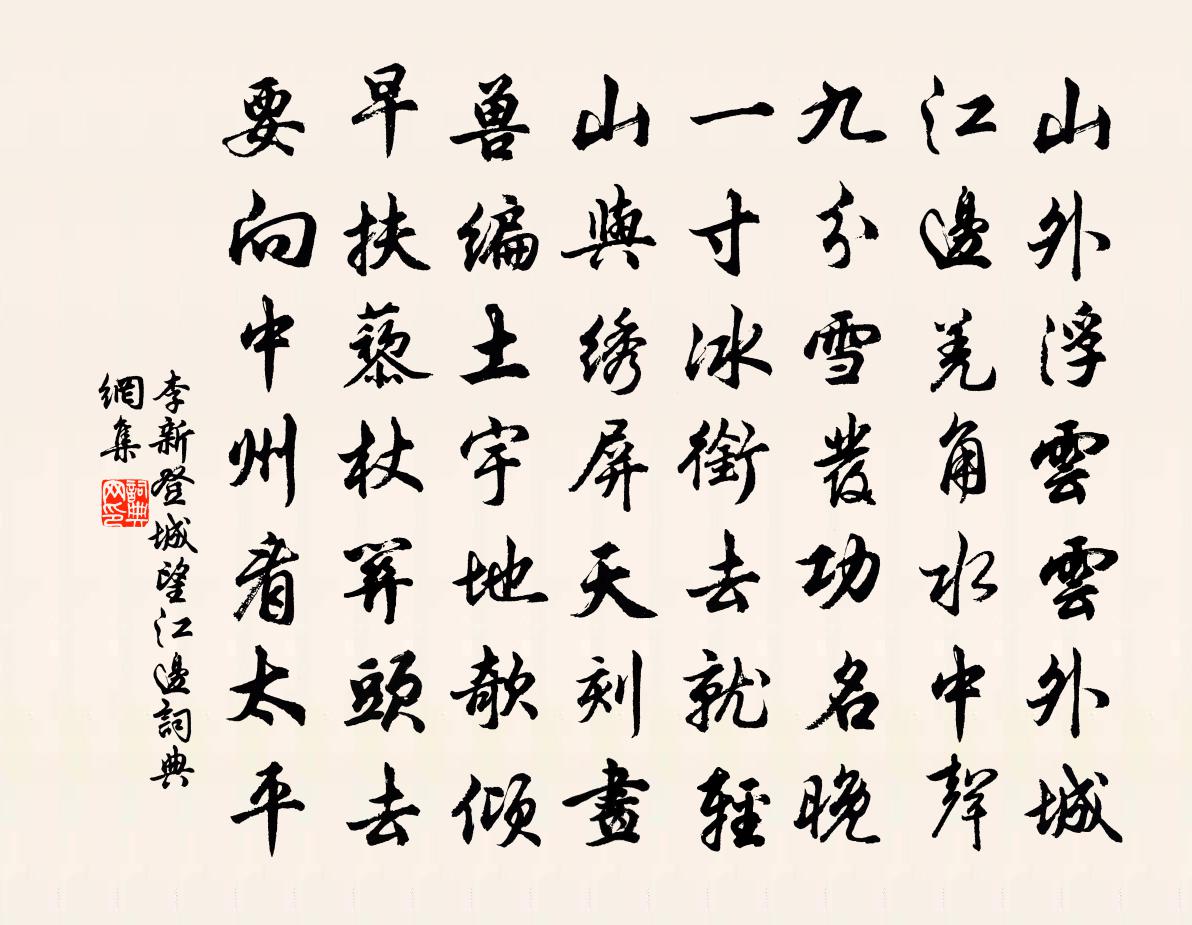 山外浮雲雲外城
江邊羌角水中聲
九分雪發功名晚
一寸冰銜去就輕
山與绣屏天刻畫
兽编土宇地欹倾
早扶藜杖笄頭去
要向中州看太平
李新登城望江邊詞典
網集
詞典
网印